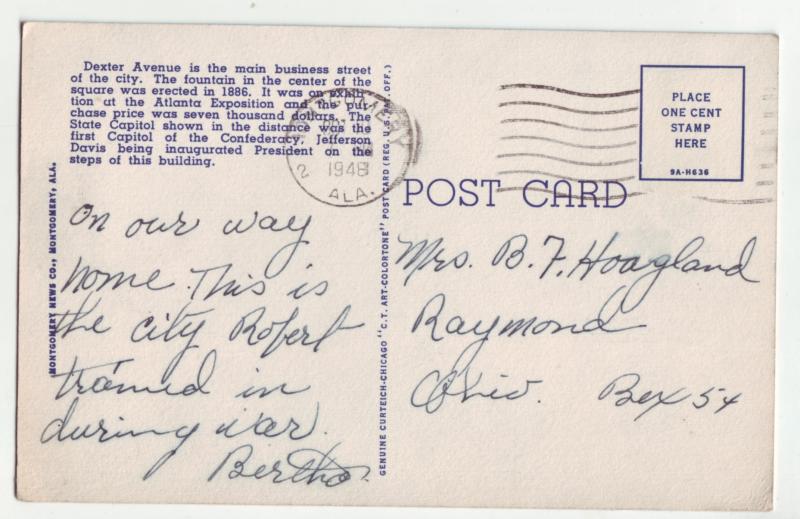 Dexter Avenue is the main business street
of the city. The fountain in the center of the
square was erected in 1886. It was on exhibi-
tion at the Atlanta Exposition and the pur-
chase price was seven thousand dollars. The
State Capitol shown in the distance was the
first Capitol of the Confederacy, Jefferson
Davis being inaugurated President on the
steps of this building.
MONTGOMERY NEWS CO., MONTGOMERY, ALA.
On our way
home. This is
the city Robert
trained in
during war.
Bertha.
GENUINE CURTEICH-CHICAGO "C.T. ART-COLORTONE" POST CARD (REG. U.S. PAT. OFF.)
MONTGOMERY
2
1948
ALA.
POST CARD
PLACE
ONE CENT
STAMP
HERE
9A-H636
Mrs. B. F. Hoagland
Raymond
Ohio. Box 54